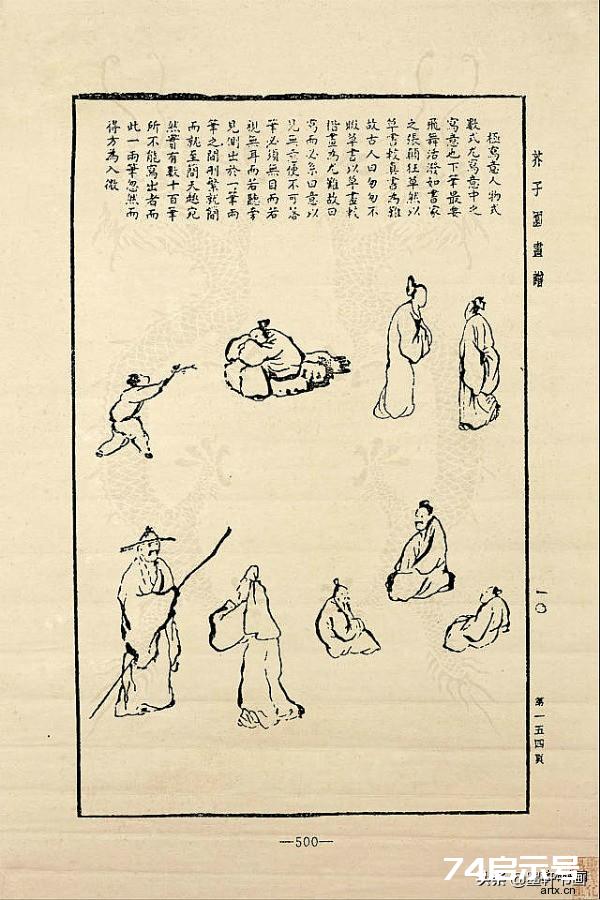 芥子園畫譜
極寫意人物式
數式尤寫意中之
寫意也下筆最要
飛舞活潑如書家
之張顛狂草然以
草書較真書為難
故古人曰匆匆不
暇草書以草畫較
楷畫為尤難故曰
寫而必系曰意以
見無意便不可落
筆必須無目而若
視無耳而若聽旁
見側出於一筆兩
筆之間刪繁就簡
而就至簡天趣宛
然實有數十百筆
所不能寫出者而
此一兩筆忽然而
得方為入微
一〇
第一五四頁
—500—
74启示号
artx.cn